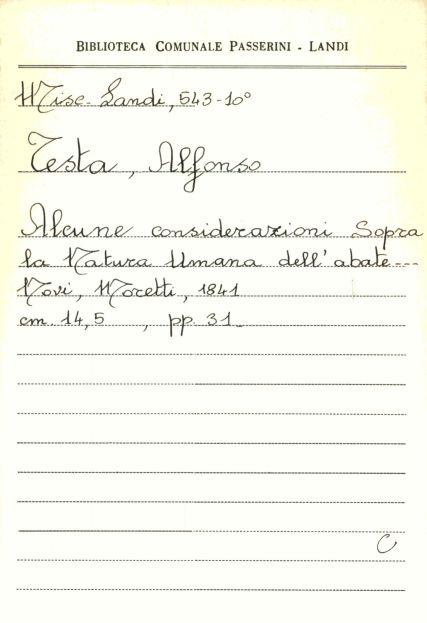 BIBLIOTECA COMUNALE PASSERINI - LANDI
Misc. Landi, 543-10°
Testa, Alfonso
Alcune considerazioni Sopra
la Natura Umana dell'abate---
Novi, Moretti, 1841
cm. 14,5 , pp. 31_
C